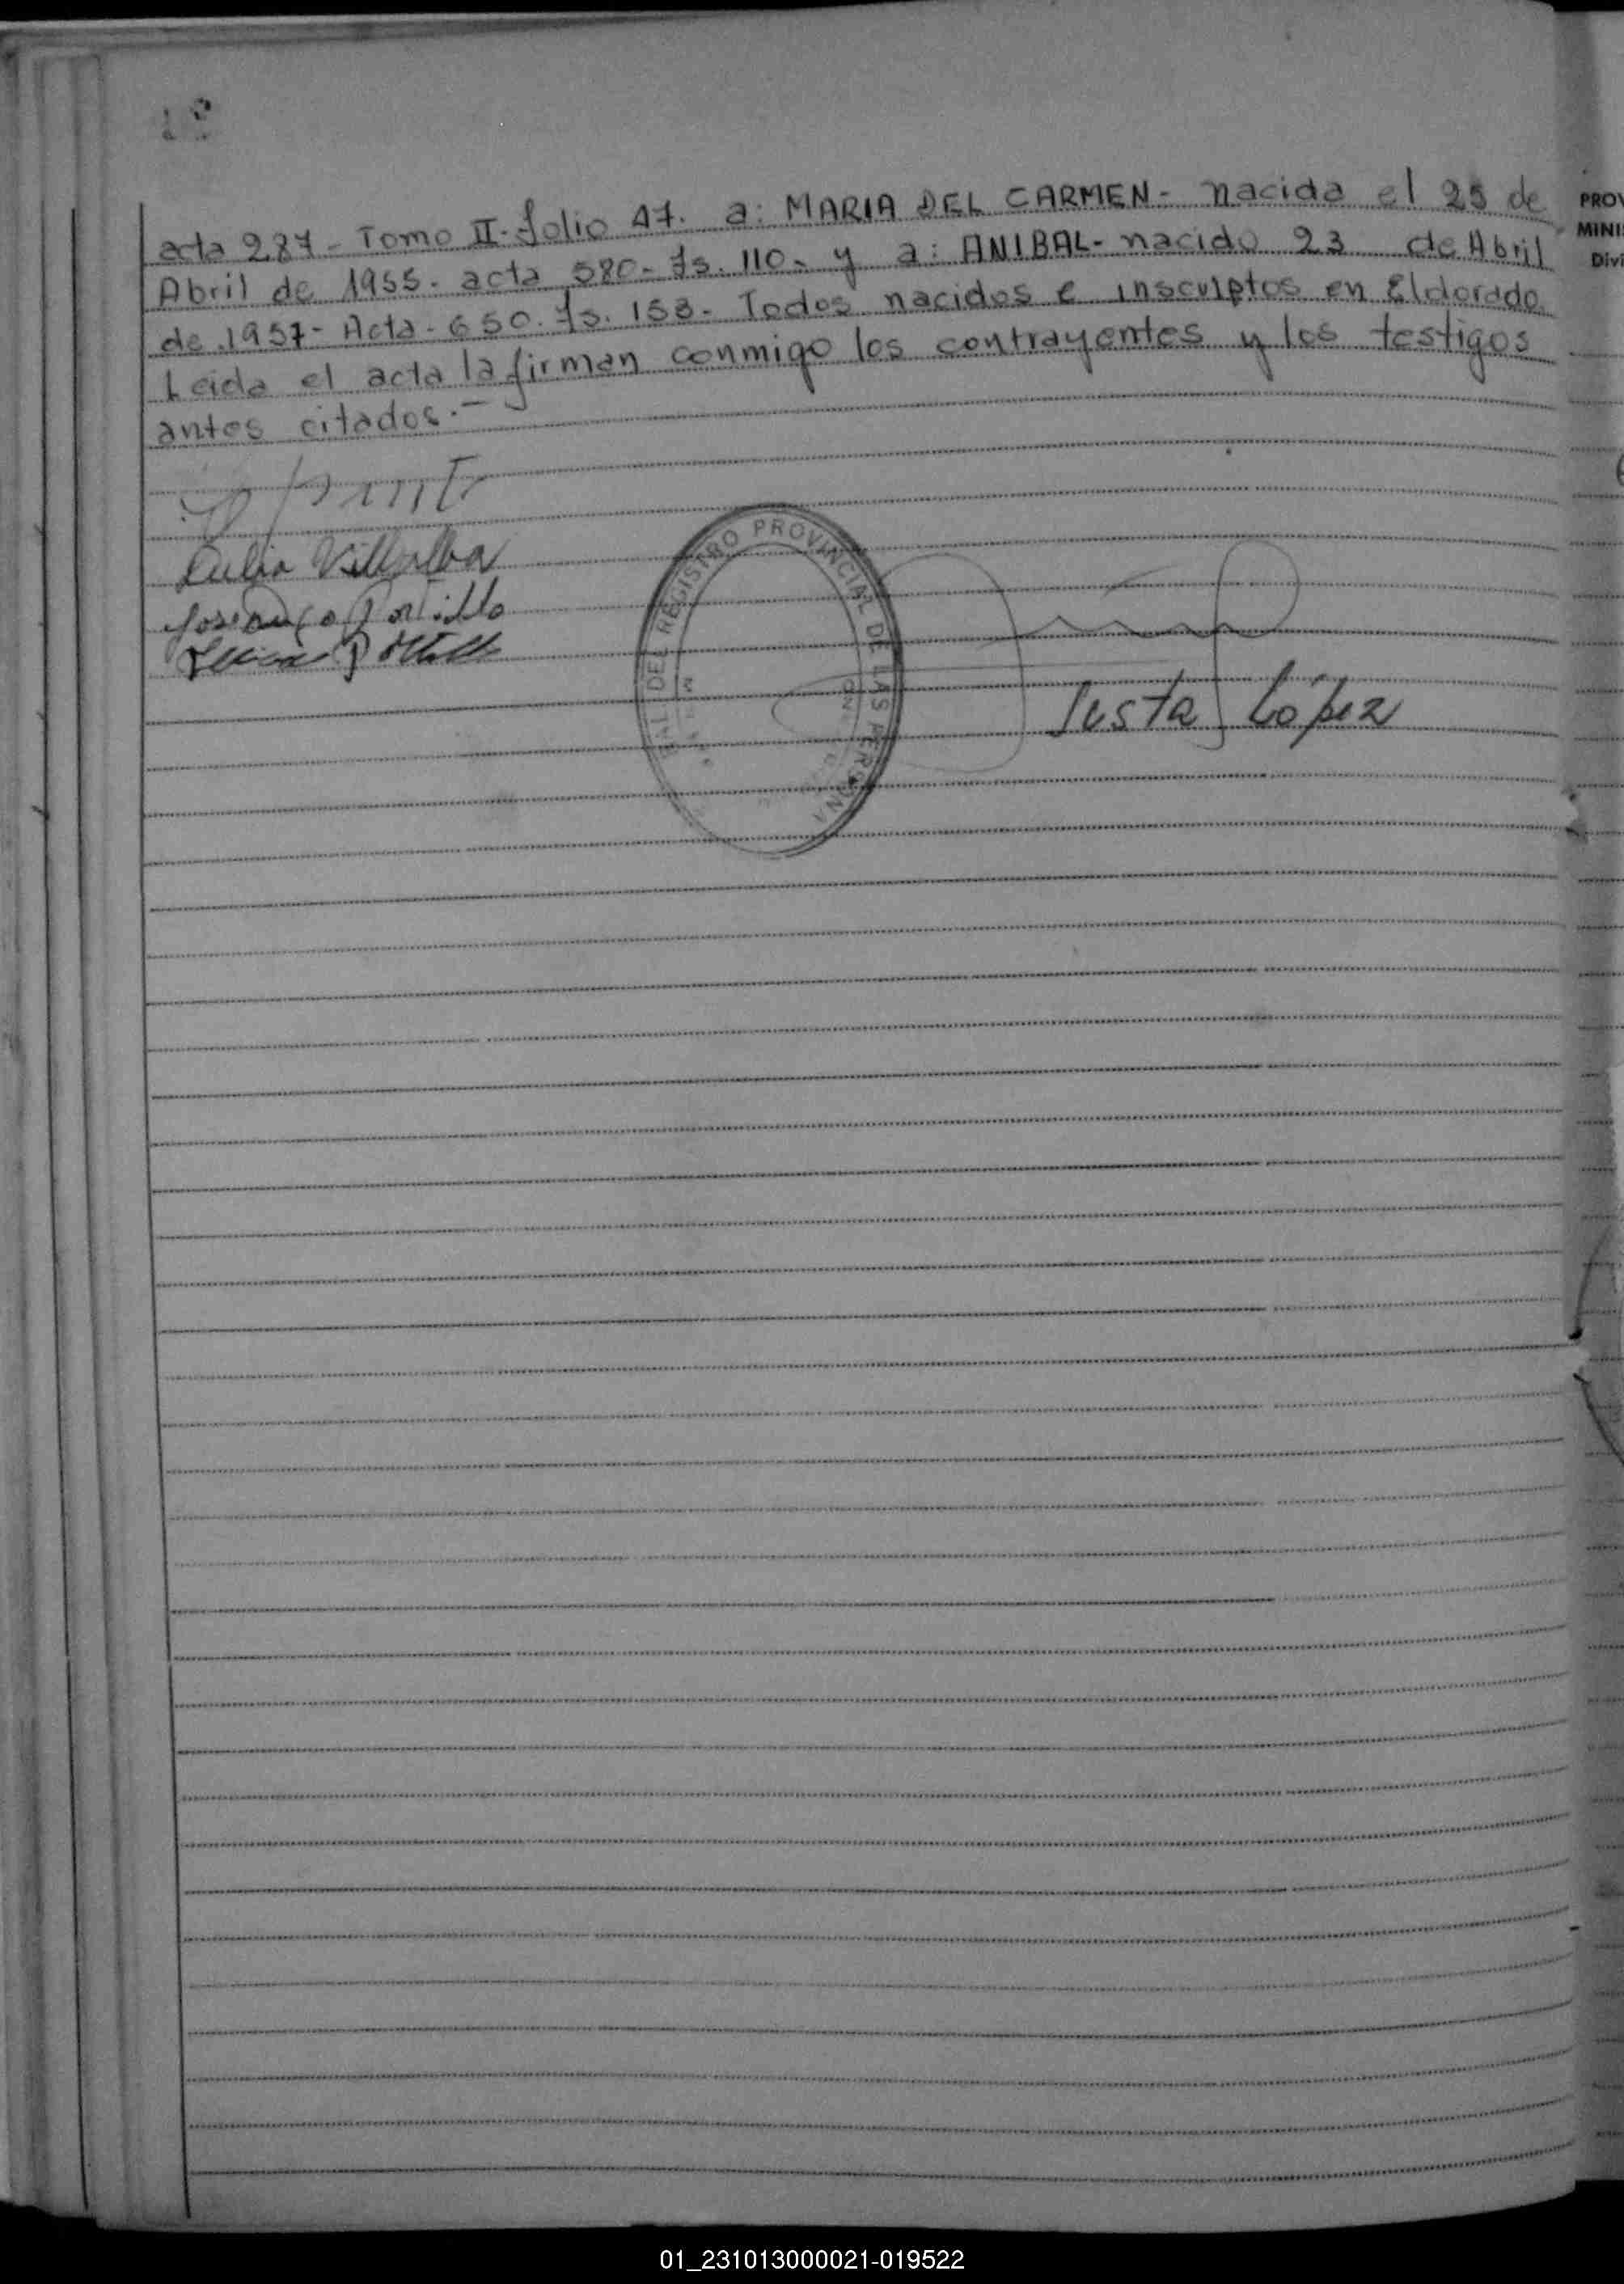 acta 287 - Tomo II - folio 47. a: MARIA DEL CARMEN - nacida el 25 de
Abril de 1955. acta 580 - fs. 110. y a: ANIBAL - nacido 23 de Abril
de 1957 - Acta - 650. fs. 153 - Todos nacidos e insculptos en Eldorado
Leida el acta la firman conmigo los contrayentes y los testigos
antes citados. -
Villalba
Portillo
REGISTRO PROVINCIAL DE LAS PERSONA
Justa López
PROV
MINI
Divi
01_231013000021-019522